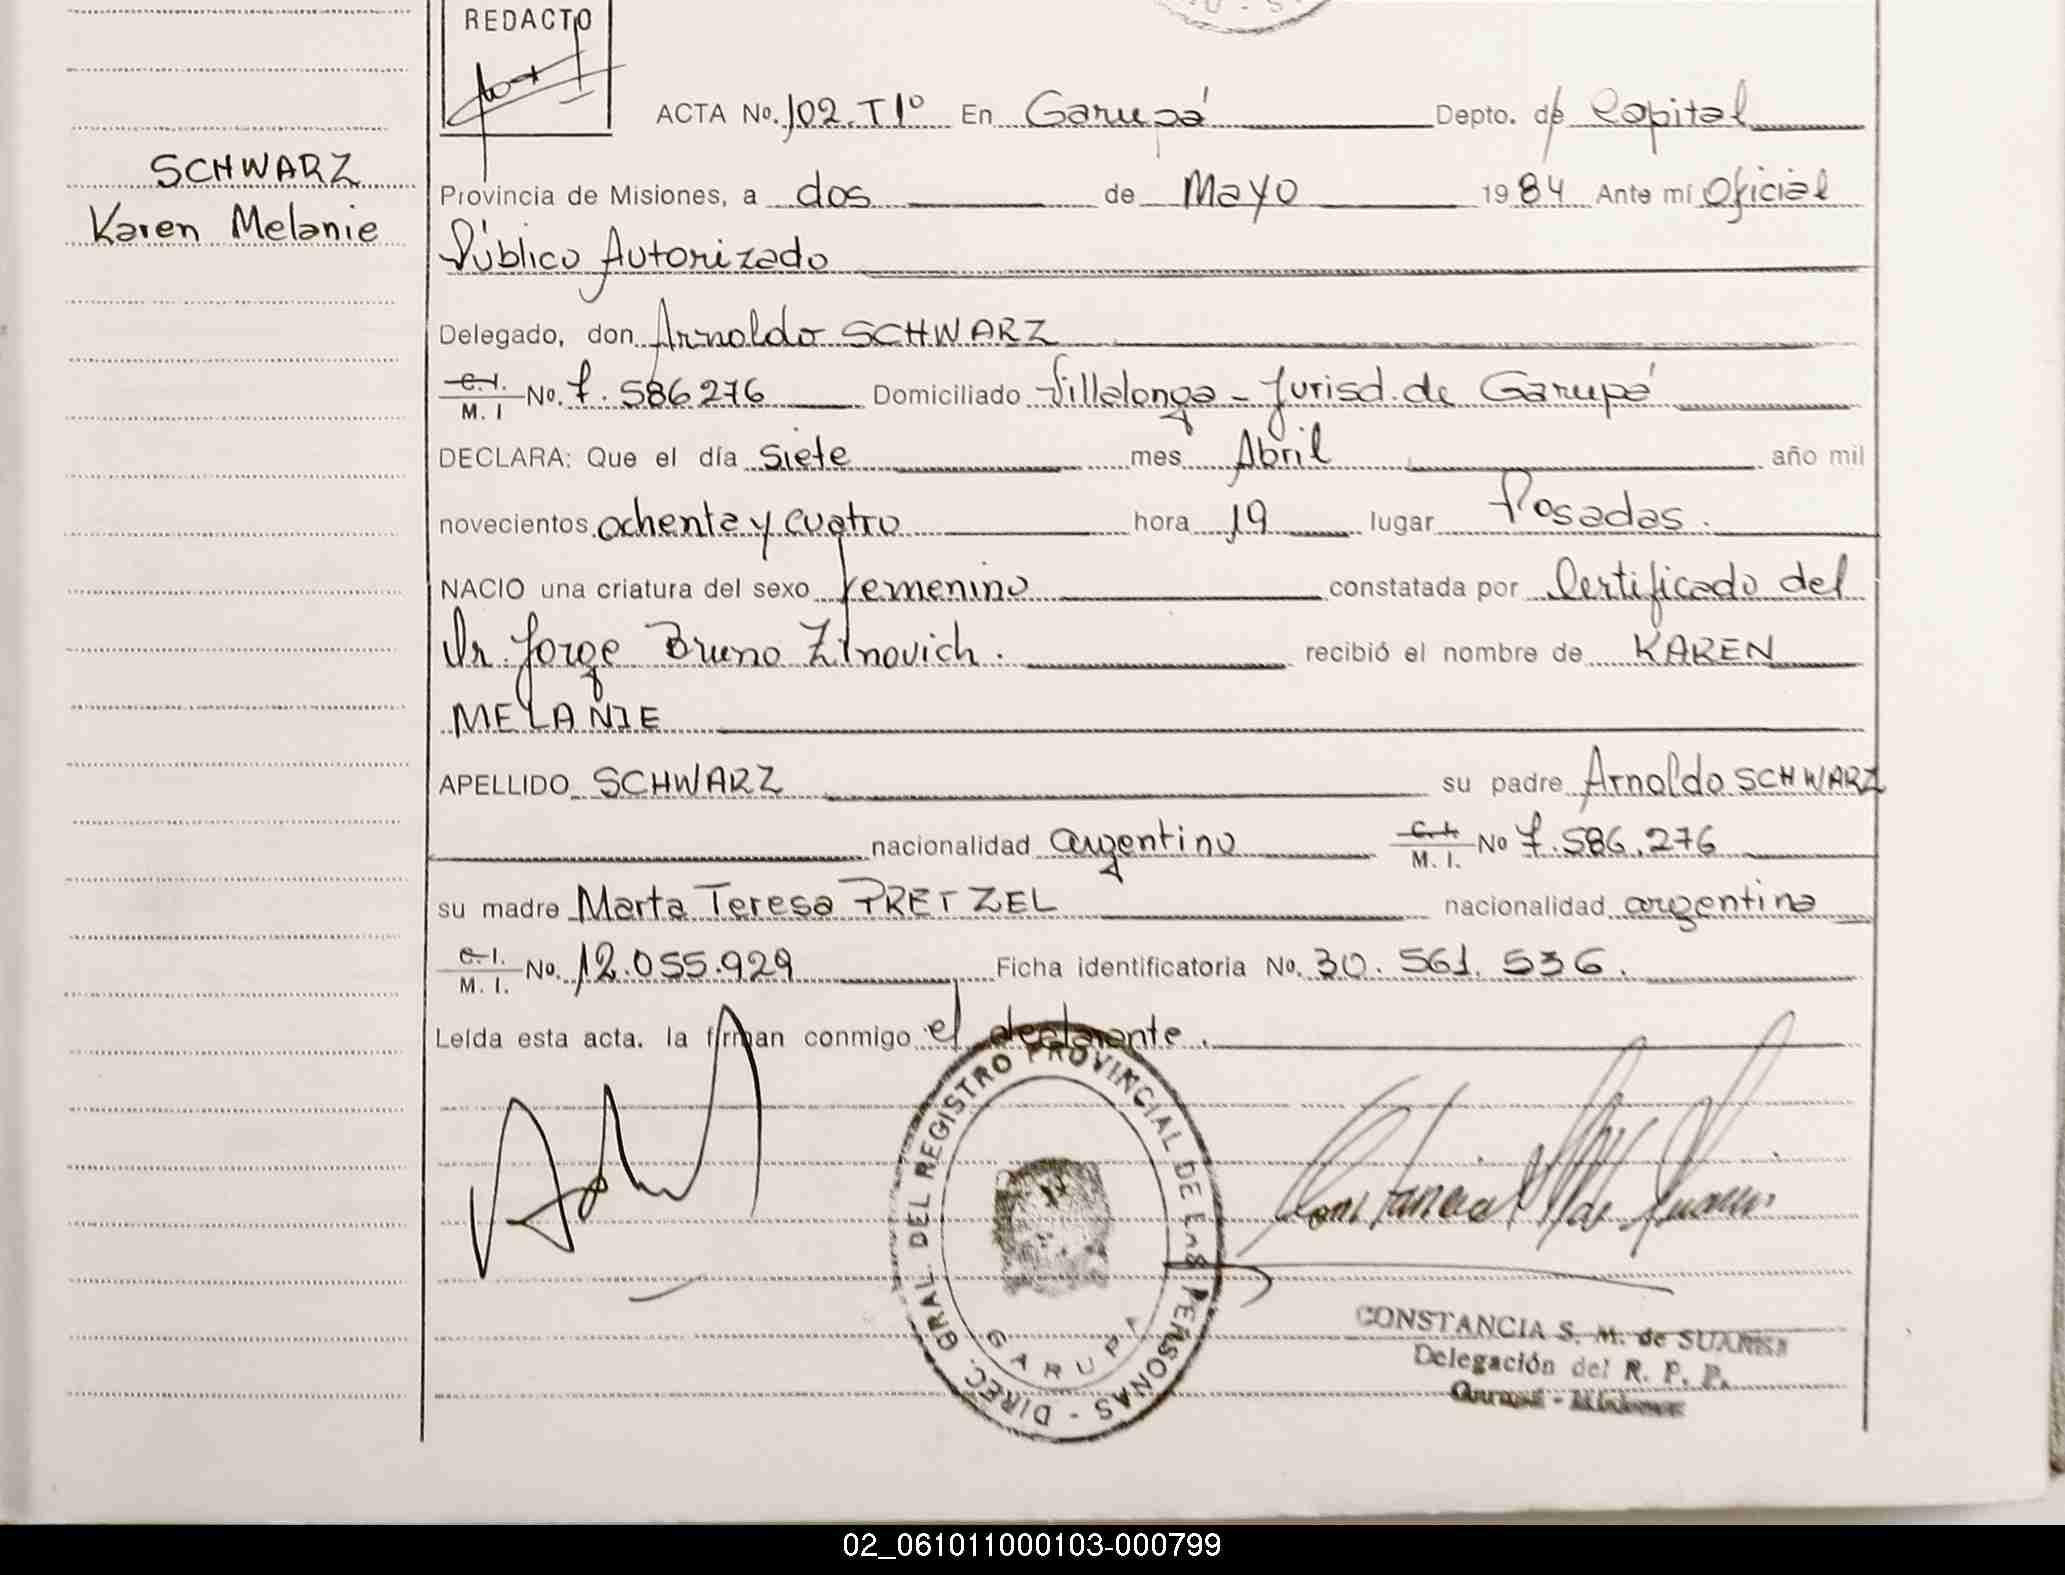 REDACTO
ACTA No. 102. T1º En Garupá Depto. de Capital
SCHWARZ
Karen Melanie
Provincia de Misiones, a dos de Mayo 1984 Ante mí Oficial
Público Autorizado
Delegado, don Arnoldo SCHWARZ
C.I. M. I No. 7.586276 Domiciliado Villalonga - Jurisd. de Garupá
DECLARA: Que el día siete mes Abril año mil
novecientos ochenta y cuatro hora 19 lugar Posadas.
NACIO una criatura del sexo femenino constatada por Certificado del
Dr. Jorge Bruno Zinovich. recibió el nombre de KAREN
MELANIE
APELLIDO SCHWARZ su padre Arnoldo SCHWARZ
nacionalidad argentino C.I. M. I. No 7.586.276
su madre Marta Teresa PRETZEL nacionalidad argentina
C.I. M. I. No. 12.055.929 Ficha identificatoria No. 30. 561. 536.
Leída esta acta. la firman conmigo el declarante.
DIREC. GRAL. DEL REGISTRO PROVINCIAL DE LAS PERSONAS -
GARUPA
CONSTANCIA S. M. de SUAREZ
Delegación del R. P. P.
Garupá - Misiones
02_061011000103-000799